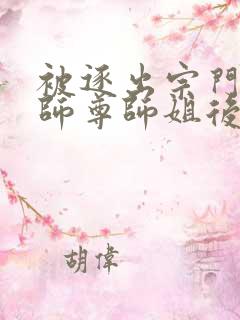 被逐出宗門
師尊師姐後
胡偉